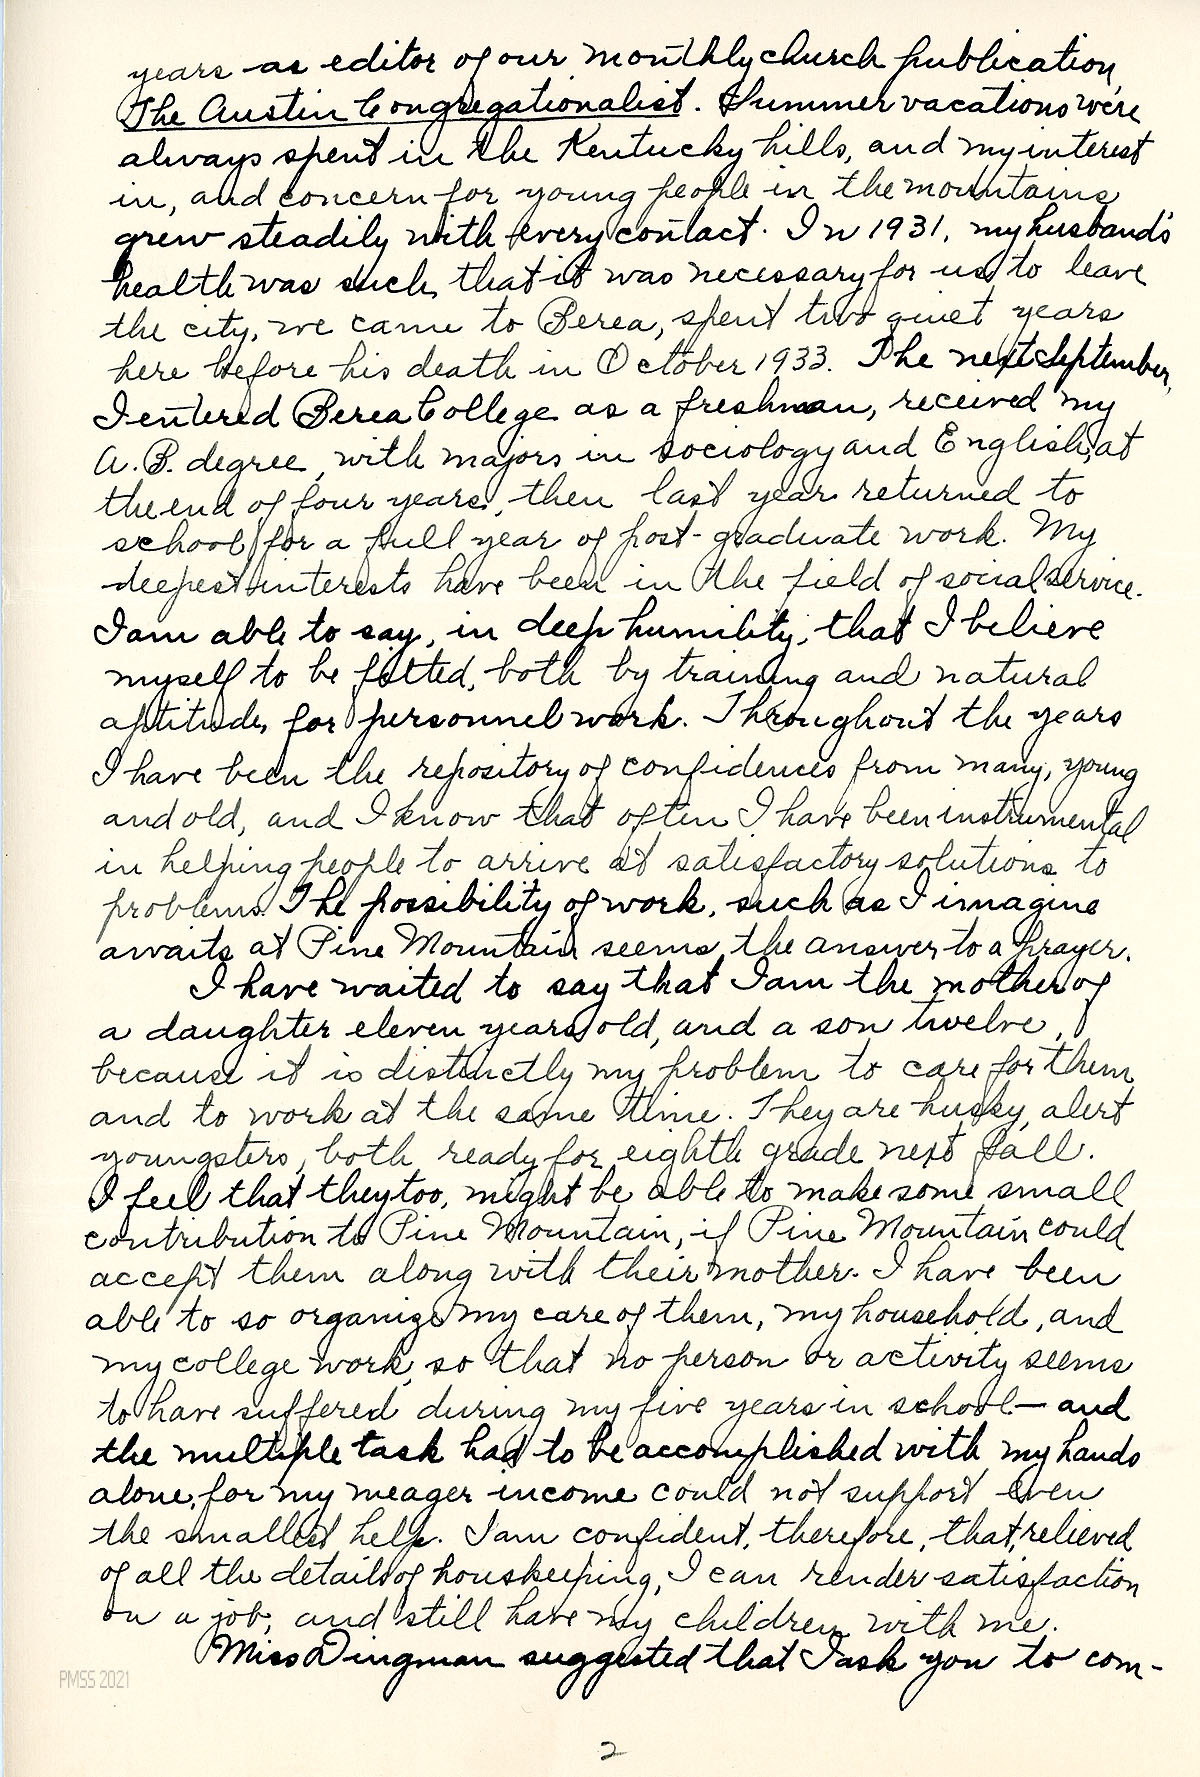 years as editor of our monthly church publication,
The Austin Congregationalist. Summer vacations were
always spent in the Kentucky hills, and my interest
in, and concern for young people in the mountains
grew steadily with every contact. In 1931, my husband's
health was such, that it was necessary for us to leave
the city, we came to Berea, spent two quiet years
here before his death in October 1933. The next September,
I entered Berea College as a freshman, received my
A.B. degree, with majors in sociology and English, at
the end of four years, then last year returned to
school for a full year of post-graduate work. My
deepest interests have been in the field of social service.
I am able to say, in deep humility, that I believe
myself to be fitted, both by training and natural
aptitude, for personnel work. Throughout the years
I have been the repository of confidences from many, young
and old, and I know that often I have been instrumental
in helping people to arrive at satisfactory solutions to
problems. The possibility of work, such as I imagine
awaits at Pine Mountain seems the answer to a prayer.
I have waited to say that I am the mother of
a daughter eleven years old, and a son twelve,
because it is distinctly my problem to care for them
and to work at the same time. They are husky, alert
youngsters, both ready for eighth grade next fall.
I feel that they too, might be able to make some small
contribution to Pine Mountain, if Pine Mountain could
accept them along with their mother. I have been
able to so organize my care of them, my household, and
my college work, so that no person or activity seems
to have suffered during my five years in school — and
the multiple task had to be accomplished with my hands
alone, for my meager income could not support even
the smallest help. I am confident, therefore, that, relieved
of all the details of housekeeping, I can render satisfaction
on a job, and still have my children with me.
Miss Dingman suggested that I ask you to com-
PMSS 2021
2